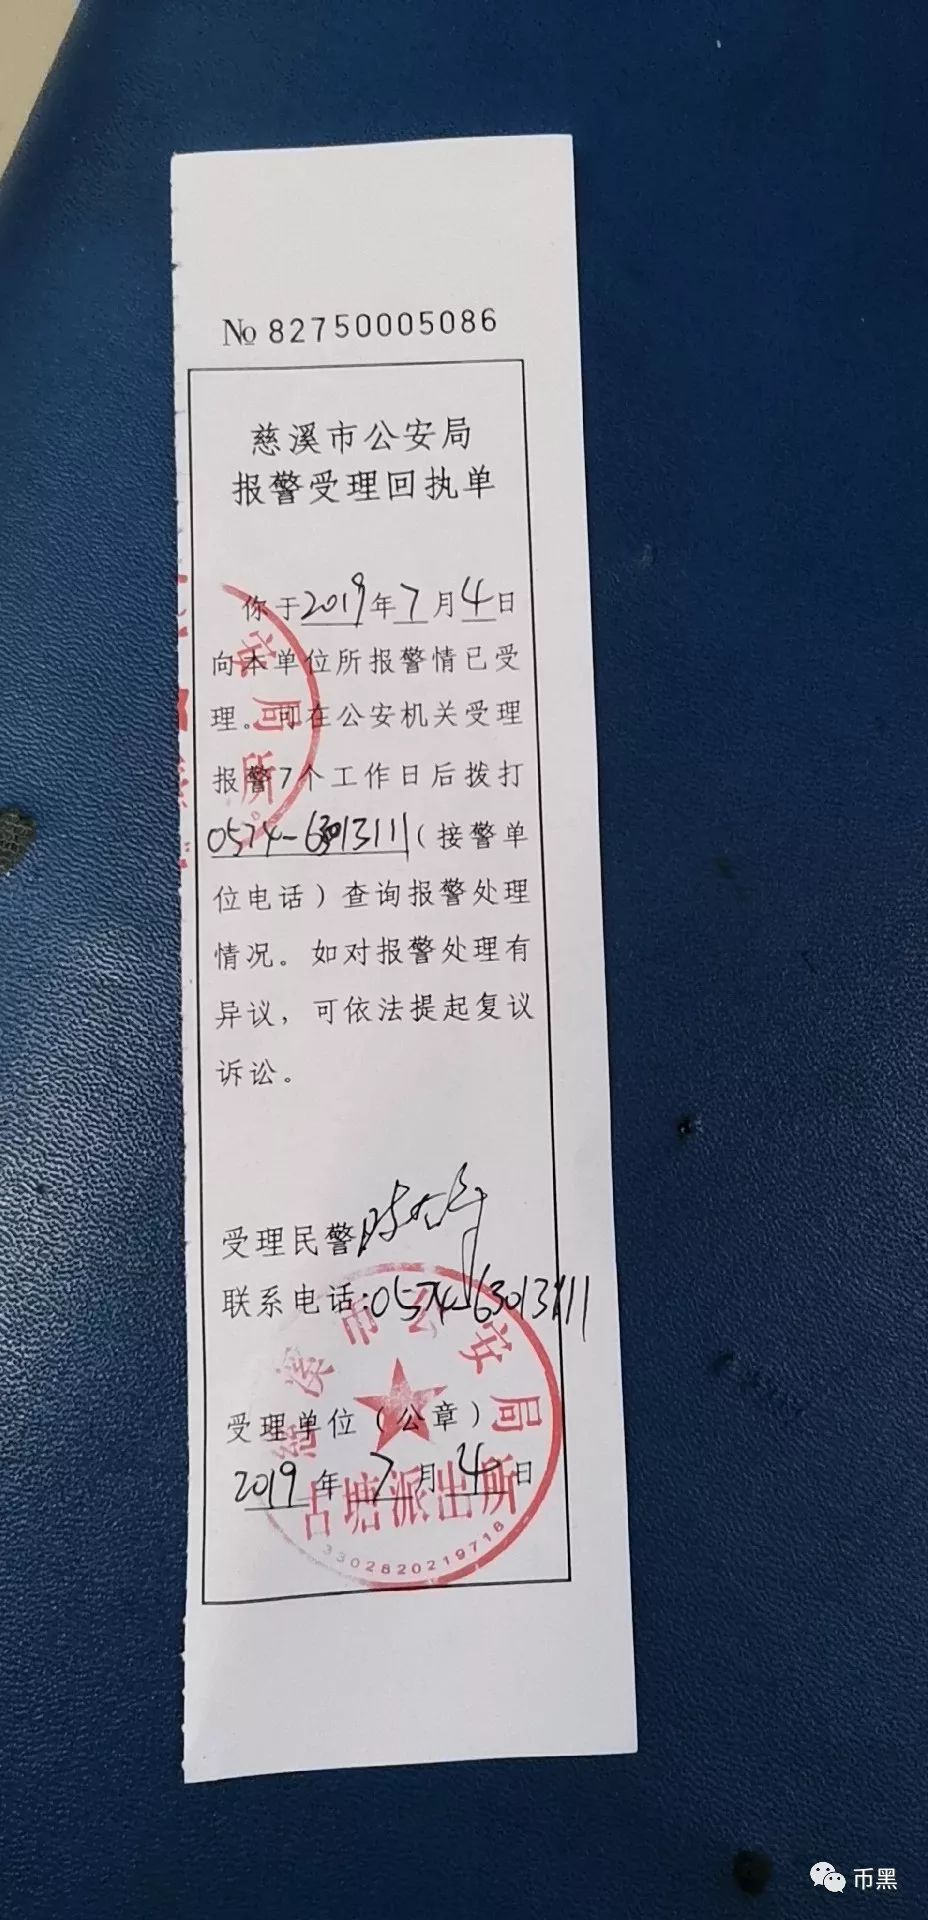 No 82750005086
慈溪市公安局
报警受理回执单
你于2019年7月4日
向本单位所报警情已受
理。可在公安机关受理
报警7个工作日后拨打
0574-63013111(接警单
位电话)查询报警处理
情况。如对报警处理有
异议,可依法提起复议
诉讼。
安局
所
受理民警
联系电话:0574-63013111
慈溪市公安局
受理单位(公章)
2019年7月4日
古塘派出所
3302820219718
币黑